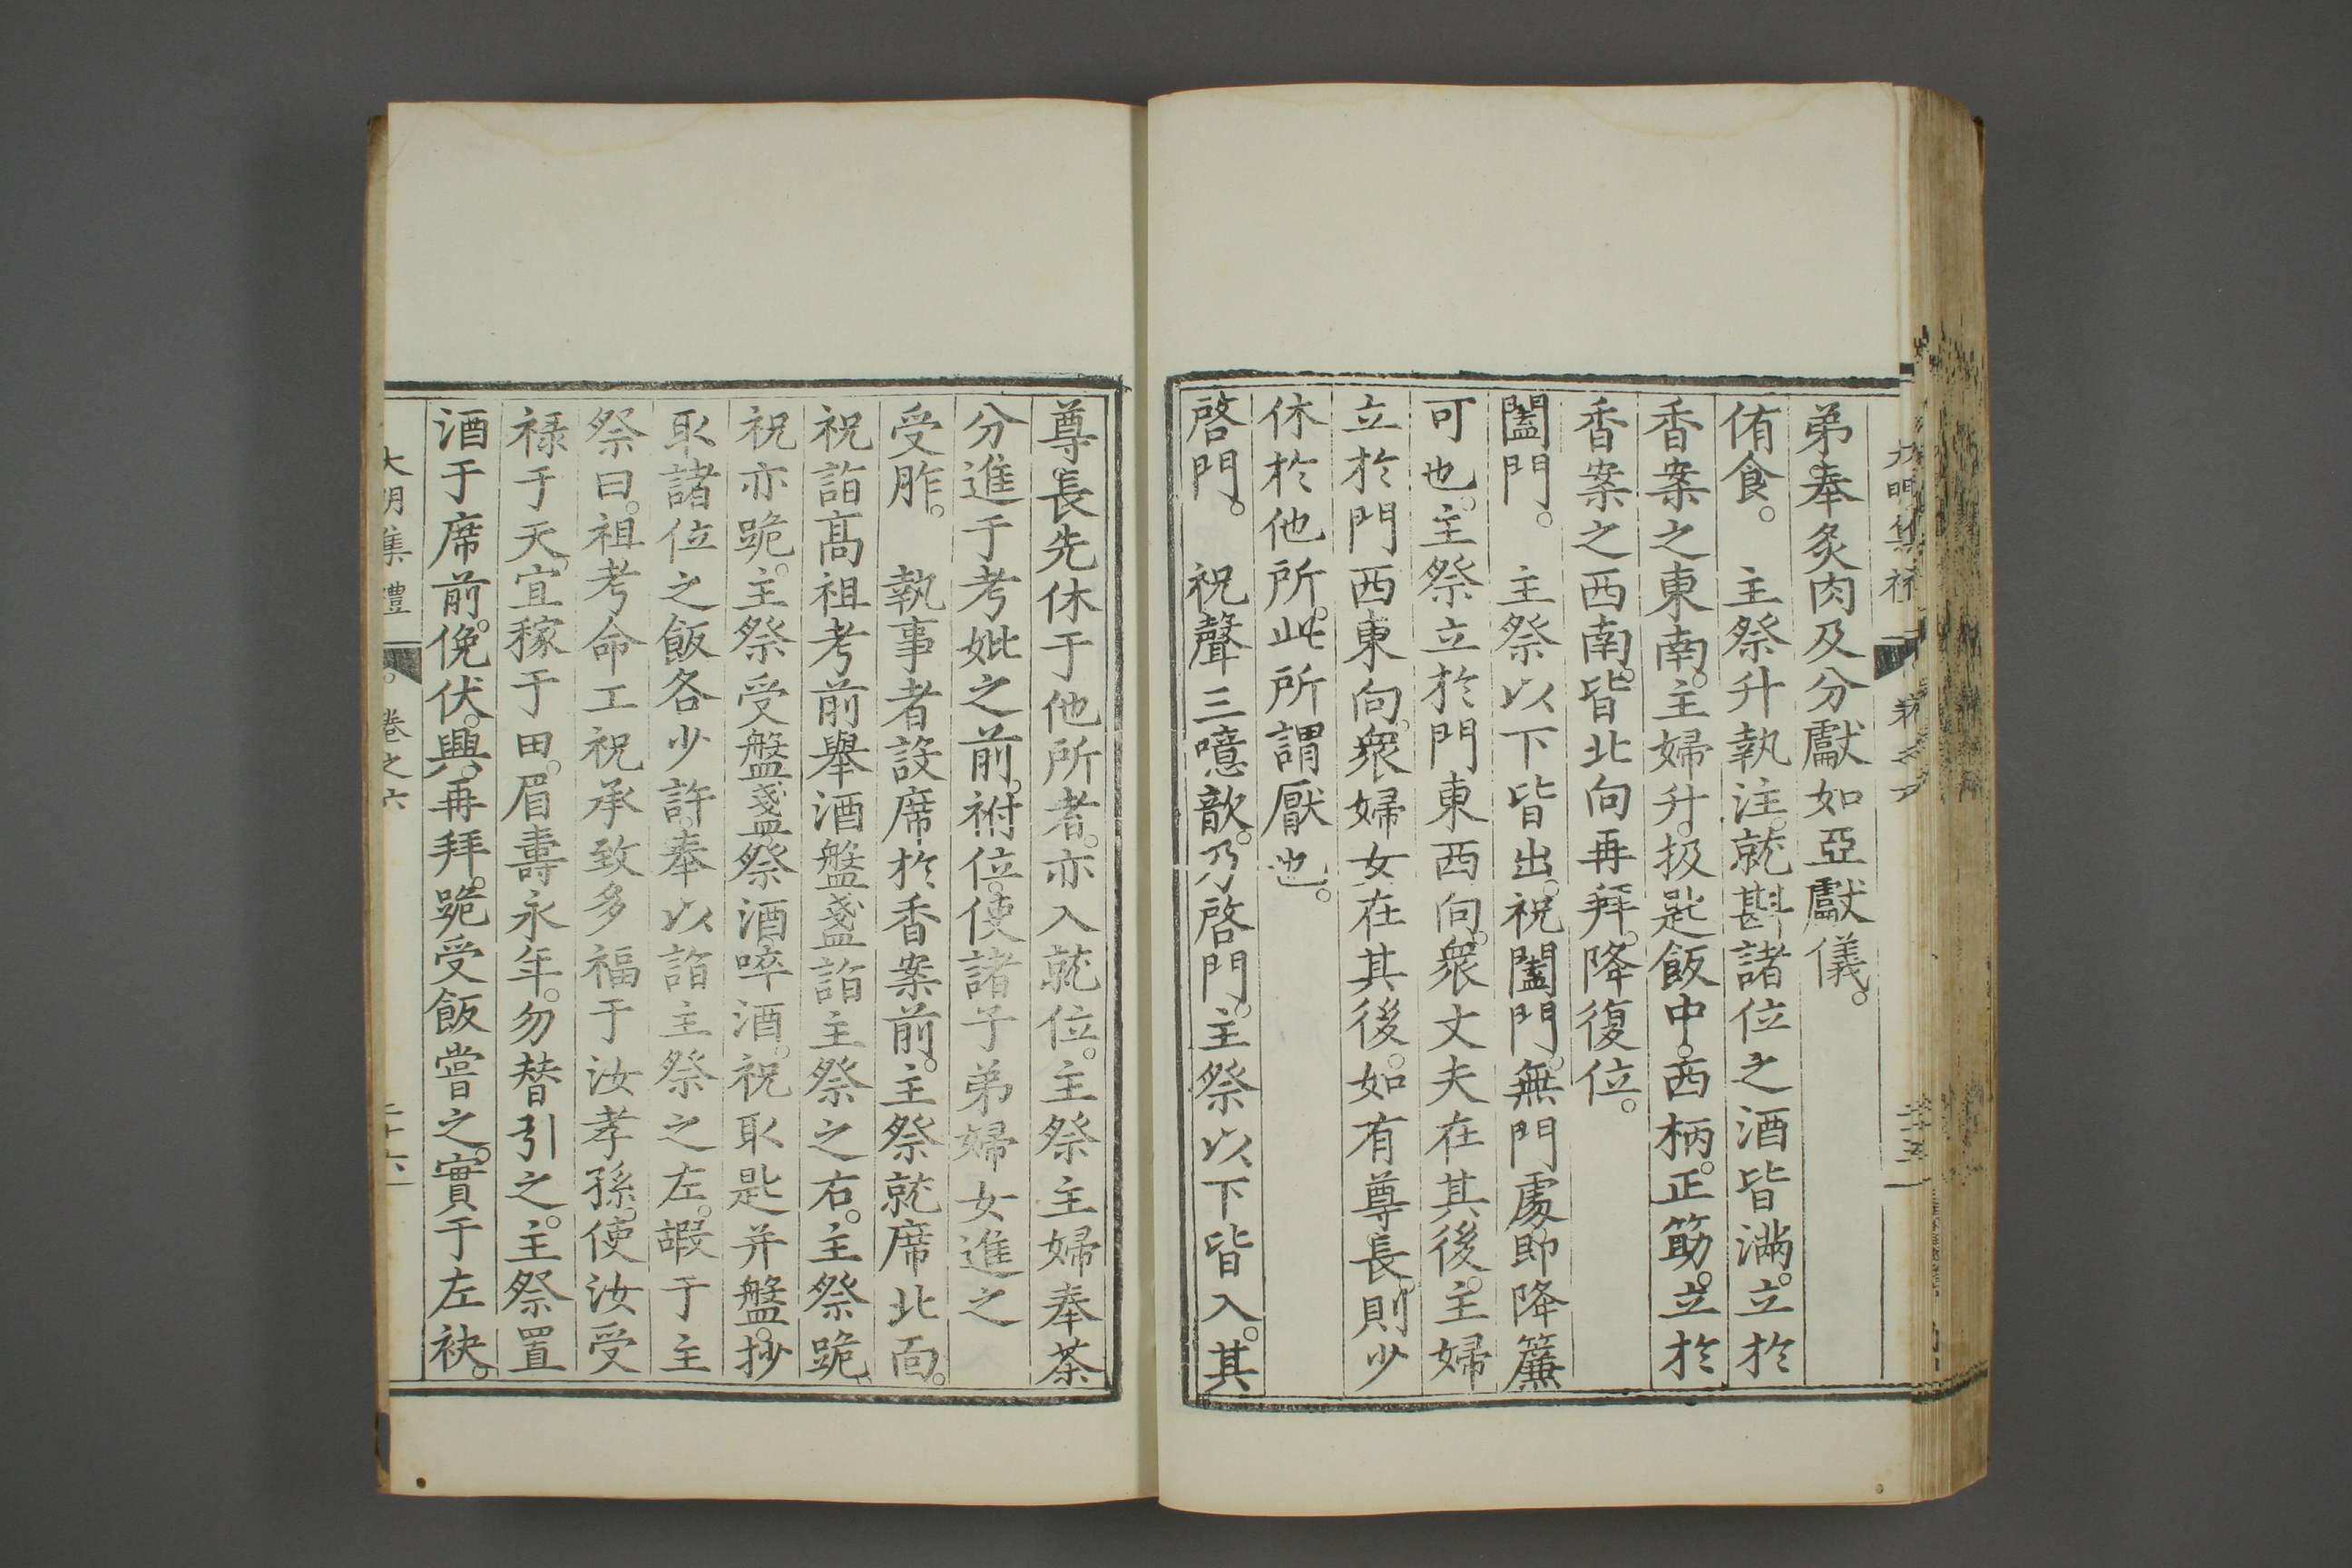 弟奉炙肉及分獻如亞獻儀。
侑食。　主祭升執注。就斟諸位之酒皆滿。立於
香案之東南。主婦升。扱匙飯中。西柄。正筯。立於
香案之西南。皆北向再拜。降復位。
闔門。　主祭以下皆出。祝闔門。無門處即降簾
可也。主祭立於門東西向。衆丈夫在其後。主婦
立於門西東向。衆婦女在其後。如有尊長。則少
休於他所。此所謂厭也。
啓門。　祝聲三噫歆。乃啓門。主祭以下皆入。其
尊長先休于他所者。亦入就位。主祭主婦奉茶
分進于考妣之前。祔位。使諸子弟婦女進之
受胙。　執事者設席於香案前。主祭就席北面。
祝詣高祖考前舉酒盤盞詣主祭之右。主祭跪。
祝亦跪。主祭受盤盞祭酒。啐酒。祝取匙并盤。抄
取諸位之飯各少許。奉以詣主祭之左。嘏于主
祭曰。祖考命工祝承致多福于汝孝孫。使汝受
祿于天。宜稼于田。眉壽永年。勿替引之。主祭置
酒于席前。俛伏。興。再拜。跪受飯嘗之。實于左袂。
大明集禮　卷之六　二十六